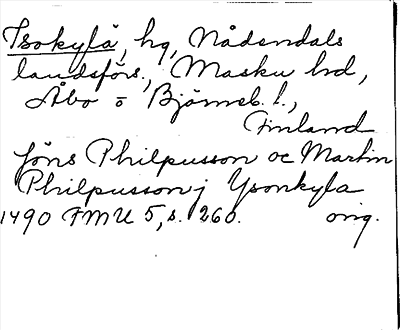 Isokylä, hg, Nådendals
landsförs., Masku hd,
Åbo o Björneb. l.,
Finland
Jöns Philpusson oc Martin
Philpusson j Ysonkyla
1490 FMU 5, s. 260. orig.